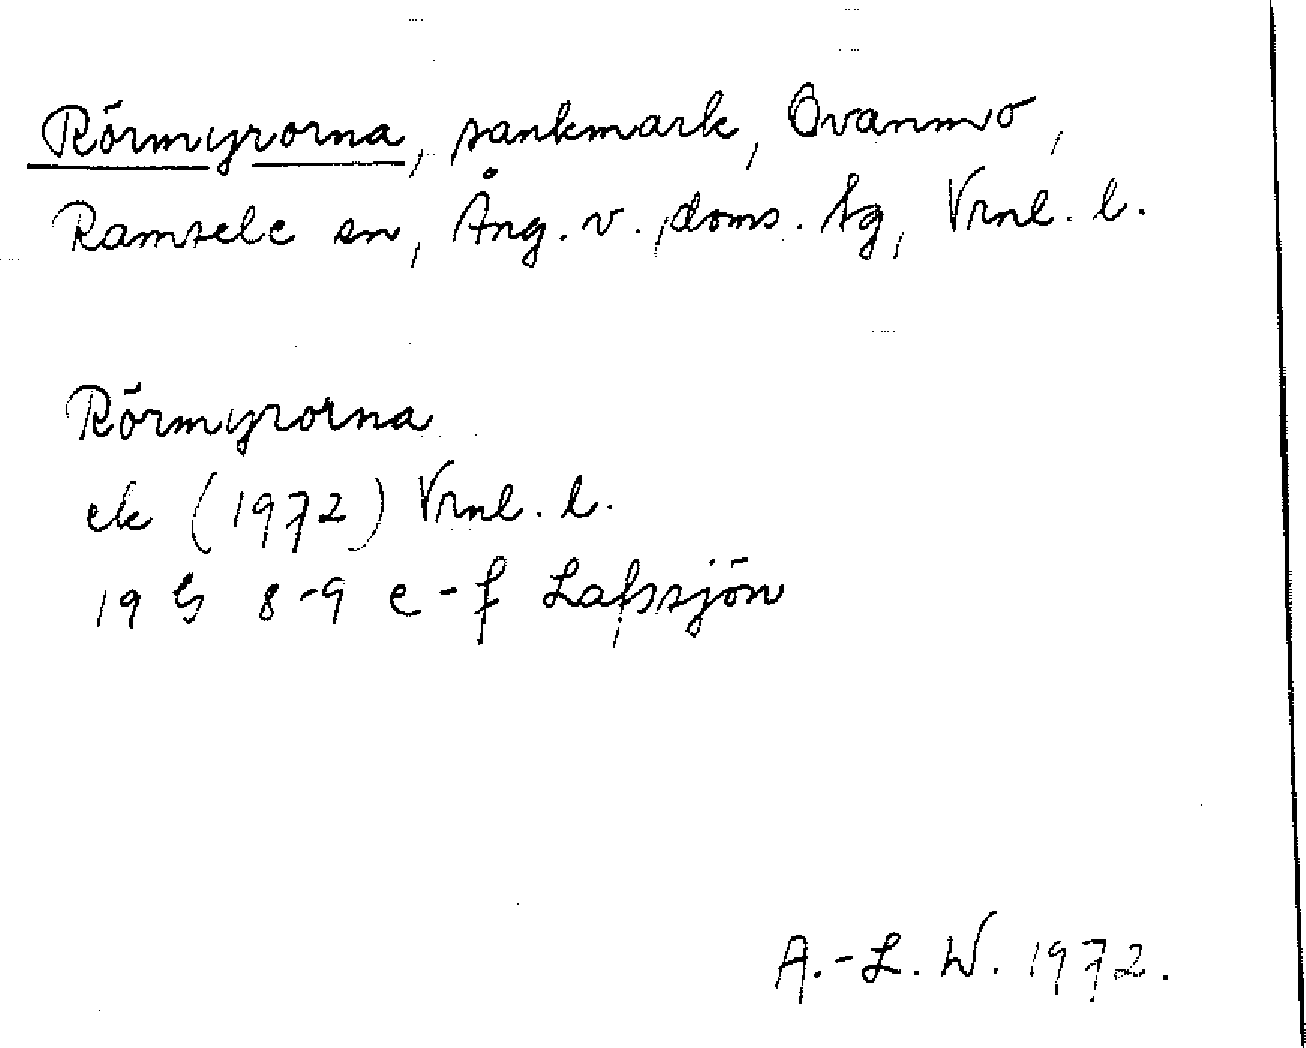 Rörmyrorna, sankmark, Ovanmo,
Ramsele sn, Ång. v. doms. tg, Vrnl. l.
Rörmyrorna
ek (1972) Vrnl. l.
19 G 8-9 e-f Lafssjön
A.-L. W. 1972.